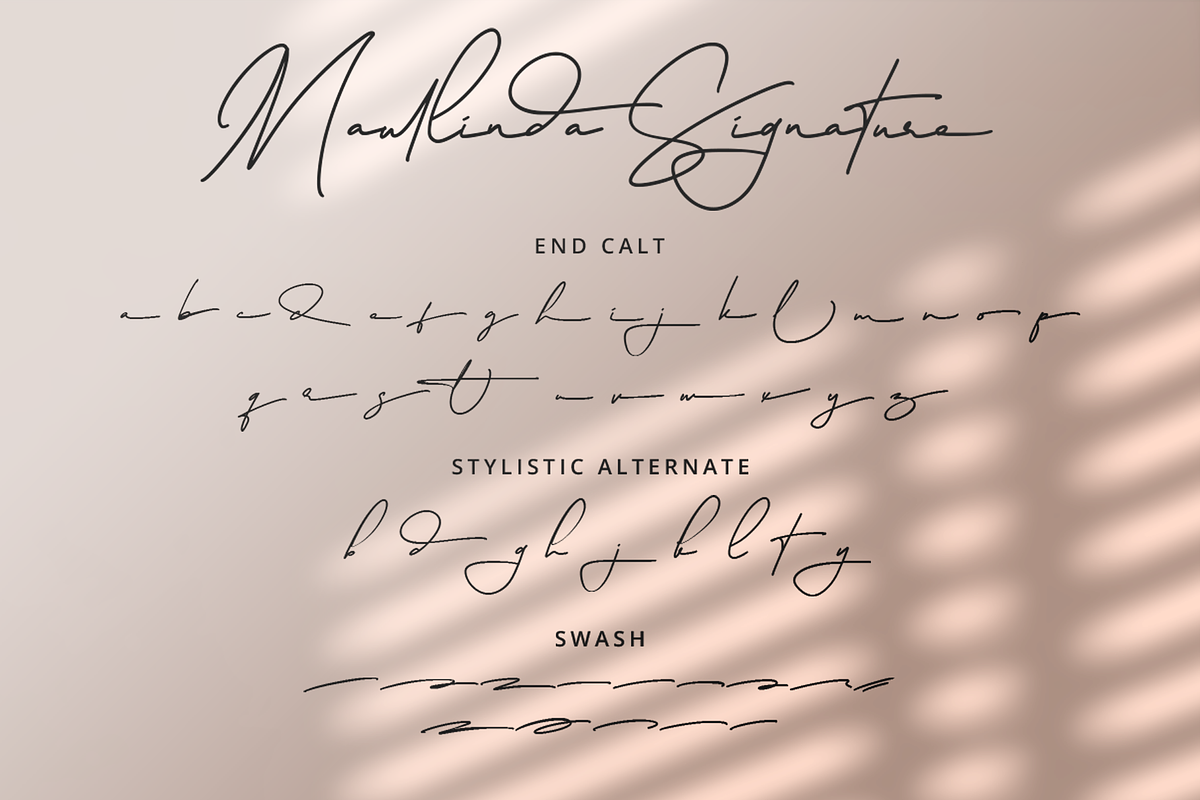 Mawllinda Signature
END CALT
a b c d e f g h i j k l m n o p
q r s t u v w x y z
STYLISTIC ALTERNATE
b d g h j k l t y
SWASH